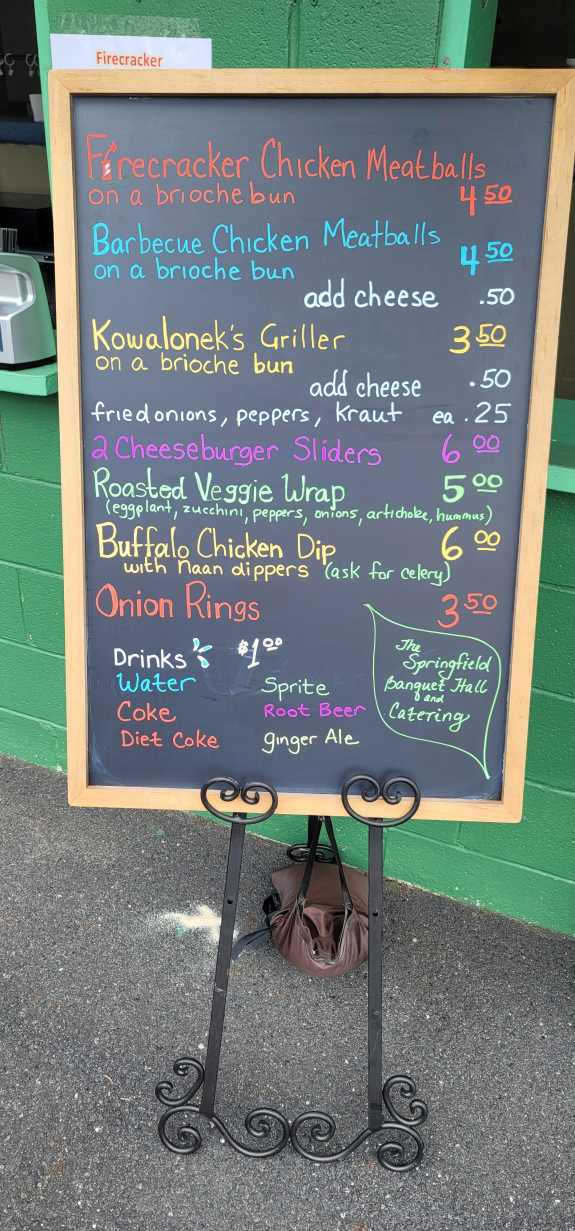 Firecracker
Firecracker Chicken Meatballs
on a brioche bun 4 50
Barbecue Chicken Meatballs
on a brioche bun 4 50
add cheese .50
Kowalonek's Griller 3 50
on a brioche bun
add cheese .50
fried onions, peppers, kraut ea .25
2 Cheeseburger Sliders 6 00
Roasted Veggie Wrap 5 00
(eggplant, zucchini, peppers, onions, artichoke, hummus)
Buffalo Chicken Dip 6 00
with naan dippers (ask for celery)
Onion Rings 3 50
Drinks $1 00
Water Sprite
Coke Root Beer
Diet Coke ginger Ale
The
Springfield
Banquet Hall
and
Catering